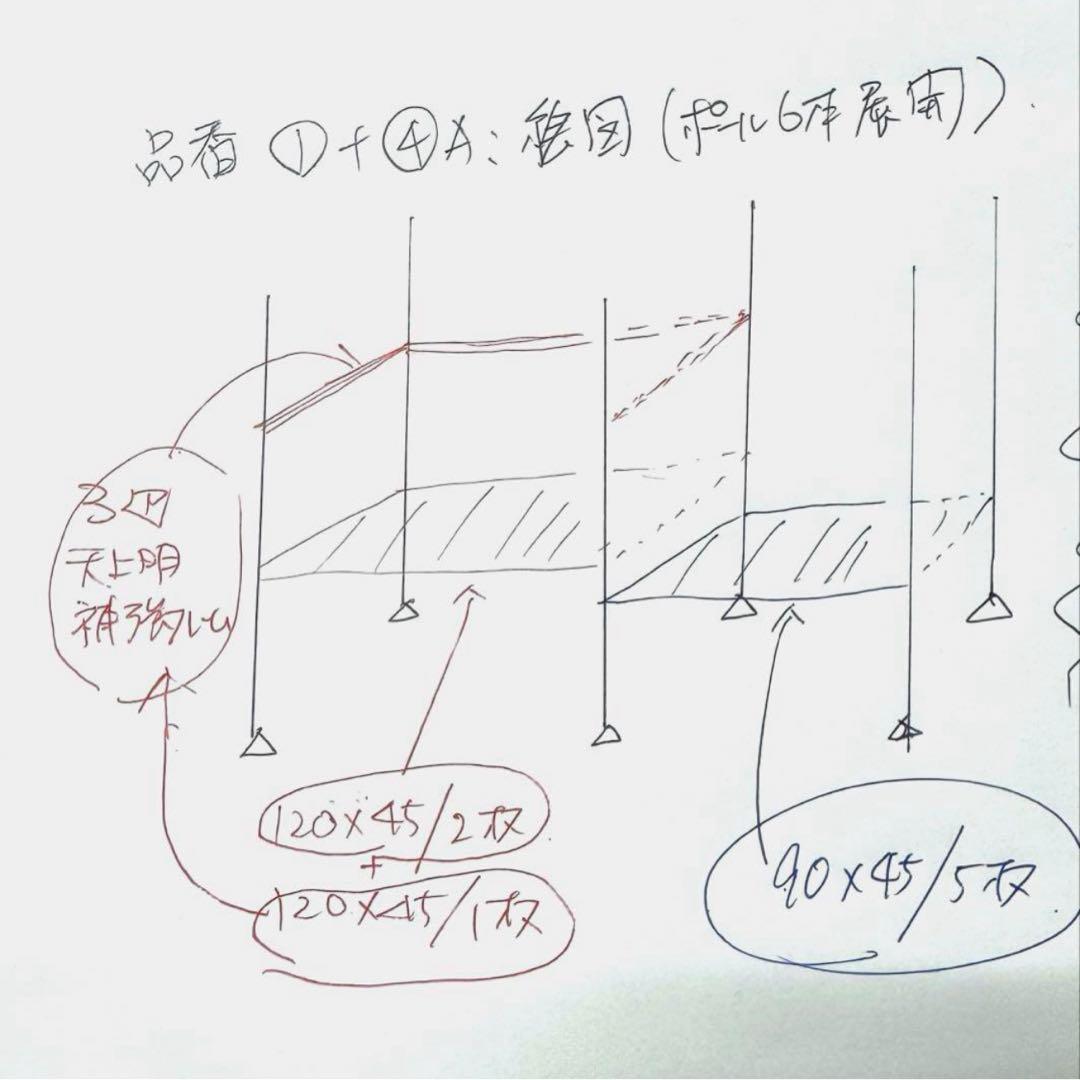 品番 ①+④A:絵図(ポール6本展開)
3凹
補強バー
120×45/2枚
+
120×45/1枚
90×45/5枚